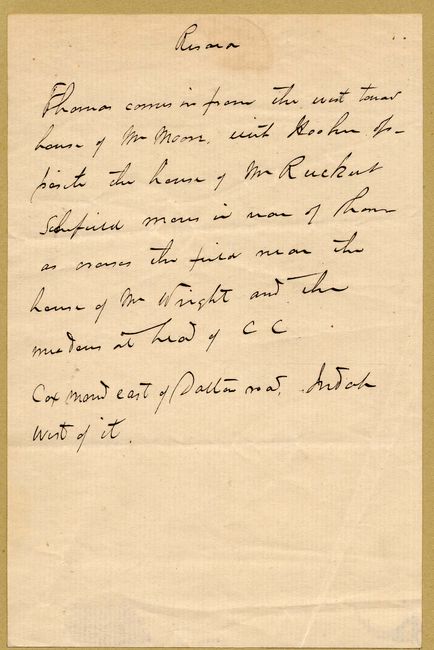 Resaca
Thomas comes in from the west toward
house of Mr Moon, with Hooker op-
posite the house of Mr Ruckert
Schofield moves in rear of Thom
as crosses the field near the
house of Mr Wright and the
meadows at head of C C
Cox moved east of Dalton road, Judah
West of it.